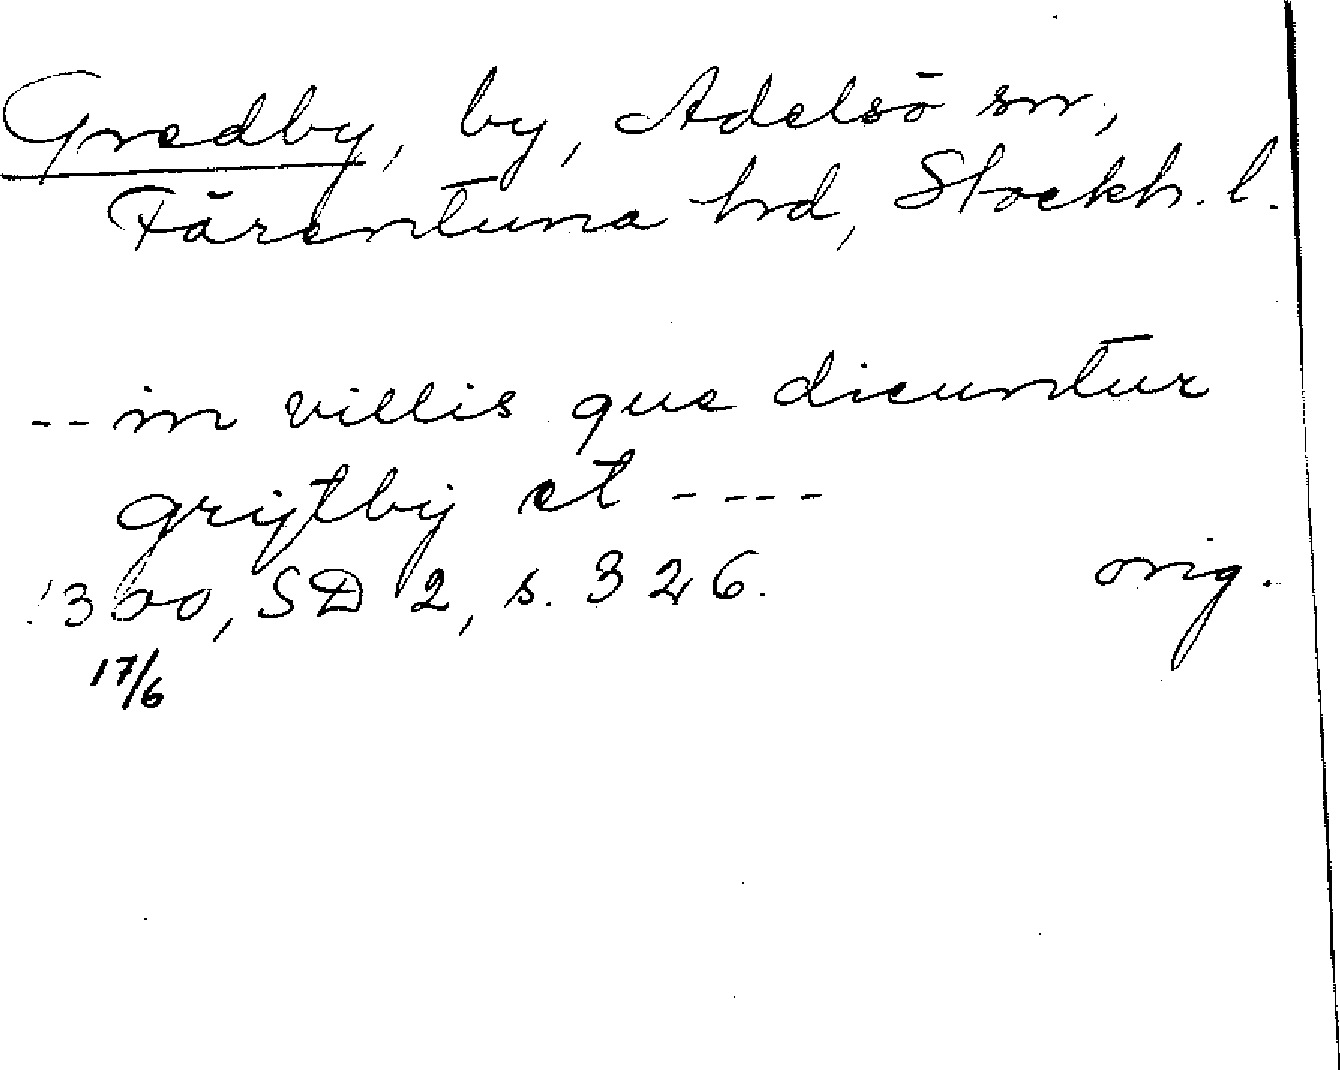 Gredby, by, Adelsö sn,
Färentuna hd, Stockh. l.
-- in villis que dicuntur
grijtbij et ----
1300, SD 2, s. 326. orig.
17/6